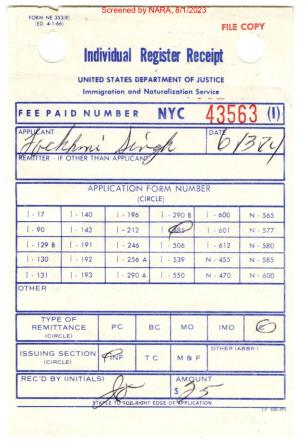 Screened by NARA, 8/1/2023
FORM NE 353(R)
(ED. 4-1-66)
FILE COPY
Individual Register Receipt
UNITED STATES DEPARTMENT OF JUSTICE
Immigration and Naturalization Service
FEE PAID NUMBER NYC 43563 (1)
APPLICANT DATE
Singh
REMITTER - IF OTHER THAN APPLICANT
APPLICATION FORM NUMBER
(CIRCLE)
I - 17 I - 140 I - 196 I - 290 B I - 600 N - 565
I - 90 I - 143 I - 212 I - 485 I - 601 N - 577
I - 129 B I - 191 I - 246 I - 506 I - 612 N - 580
I - 130 I - 192 I - 256 A I - 539 N - 455 N - 585
I - 131 I - 193 I - 290 A I - 550 N - 470 N - 600
OTHER
TYPE OF REMITTANCE (CIRCLE) PC BC MO IMO C
ISSUING SECTION (CIRCLE) INF T C M & F OTHER (ABBR.)
REC'D BY (INITIALS) AMOUNT
$ 25
STAPLE TO TOP RIGHT EDGE OF APPLICATION